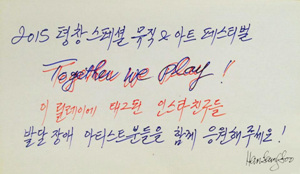 2015 평창 스페셜 뮤직 & 아트 페스티벌
Together We Play !
이 릴레이에 태그된 인스타친구들
발달장애 아티스트분들을 함께 응원해주세요!
Han Seung Soo